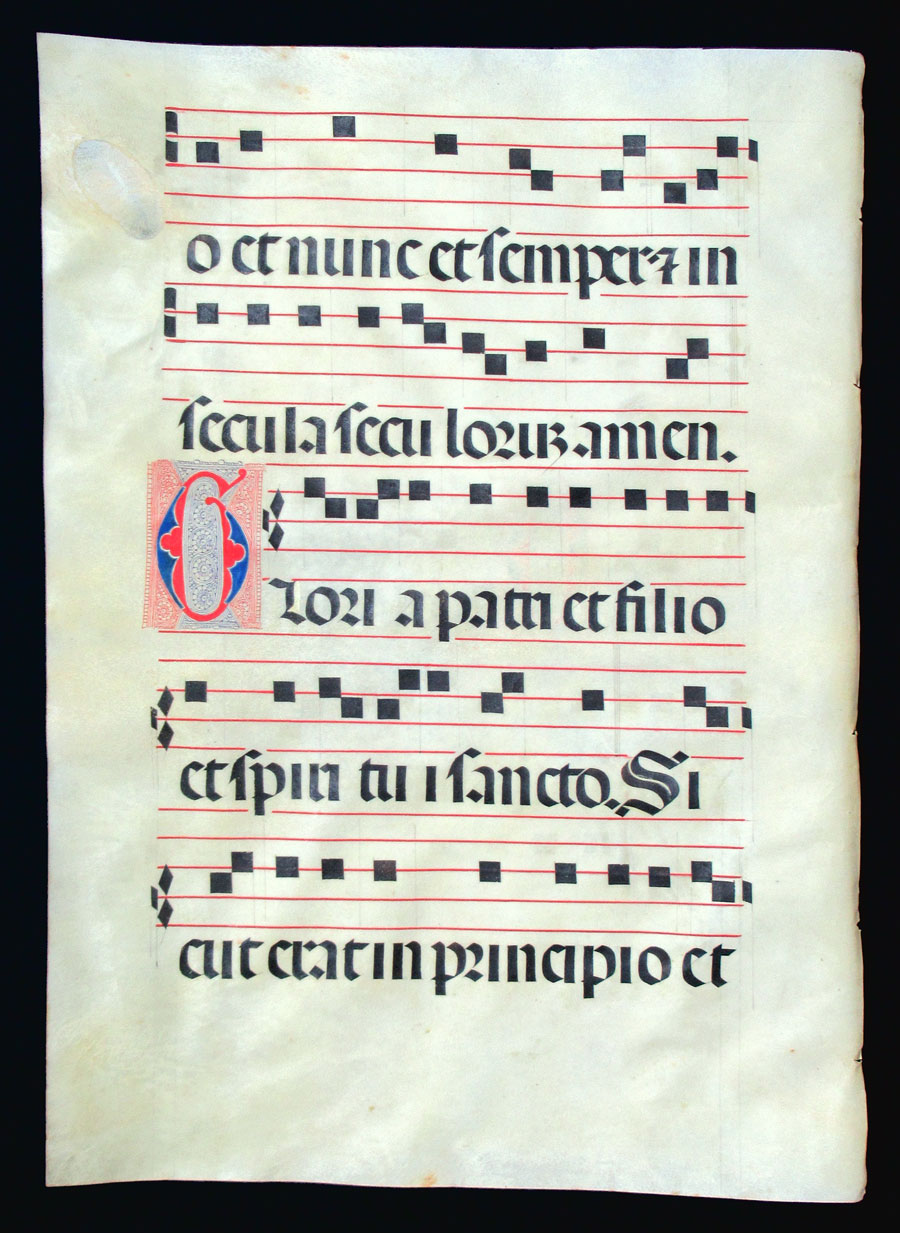 o et nunc et semper ⁊ in
secula seculoruꝫ amen.
Glori a patri et filio
et spiri tu i sancto. Si
cut erat in principio et